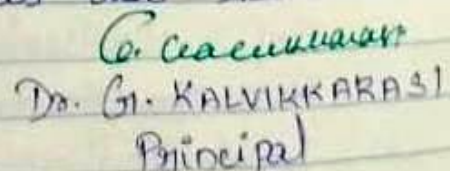 Dr. G. KALVIKKARASI
Principal